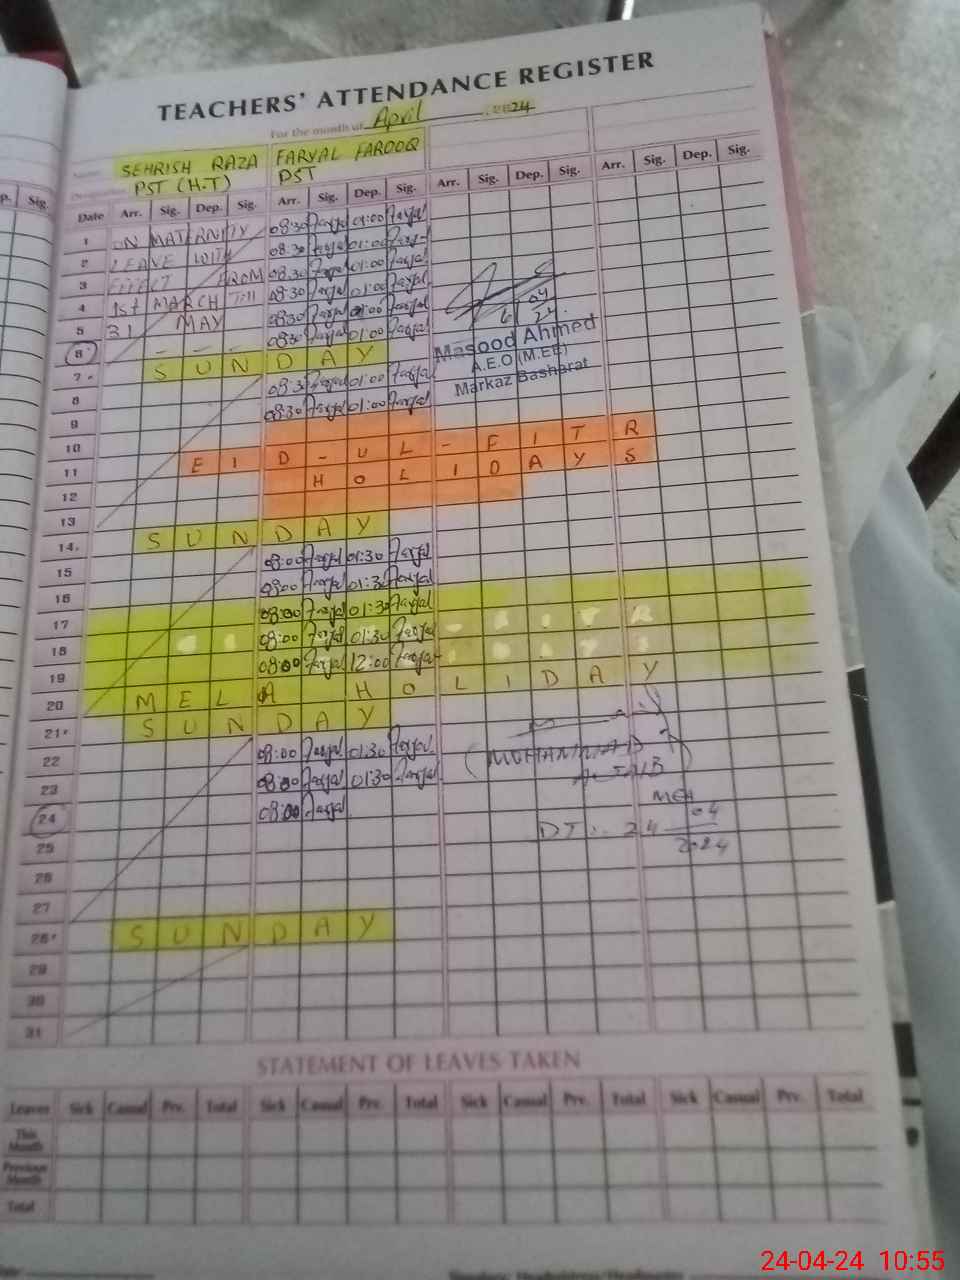 TEACHERS' ATTENDANCE REGISTER
For the month of April 2024
SEHRISH RAZA FARYAL FAROOQ
PST (H.T) PST
p. Sig.
Date Arr. Sig. Dep. Sig. Arr. Sig. Dep. Sig. Arr. Sig. Dep. Sig. Arr. Sig. Dep. Sig.
1 ON MATERNITY 08:30 Faryal 01:00 Faryal
2 LEAVE WITH 08:30 Faryal 01:00 Faryal
3 EFFECT FROM 08:30 Faryal 01:00 Faryal
4 1st MARCH Till 08:30 Faryal 01:00 Faryal
5 31 MAY 08:30 Faryal 01:00 Faryal
6 - - - 08:30 Faryal 01:00 Faryal
04
24
Masood Ahmed
A.E.O (M.EE)
Markaz Basharat
7 SUNDAY
8 08:30 Faryal 01:00 Faryal
9 08:30 Faryal 01:00 Faryal
10 EID-UL-FITR
11 HOLIDAYS
12
13
14 SUNDAY
15 08:00 Faryal 01:30 Faryal
16 08:00 Faryal 01:30 Faryal
17 08:00 Faryal 01:30 Faryal
18 08:00 Faryal 01:30 Faryal
19 08:00 Faryal 12:00 Faryal
20 MELA HOLIDAY
21 SUNDAY
22 08:00 Faryal 01:30 Faryal
23 08:00 Faryal 01:30 Faryal
24 08:00 Faryal
(MUHAMMAD
MEA
DT:. 24 04
2024
25
26
27
28 SUNDAY
29
30
31
STATEMENT OF LEAVES TAKEN
Leaves Sick Casual Prv. Total Sick Casual Prv. Total Sick Casual Prv. Total Sick Casual Prv. Total
This Month
Previous Month
Total
24-04-24 10:55